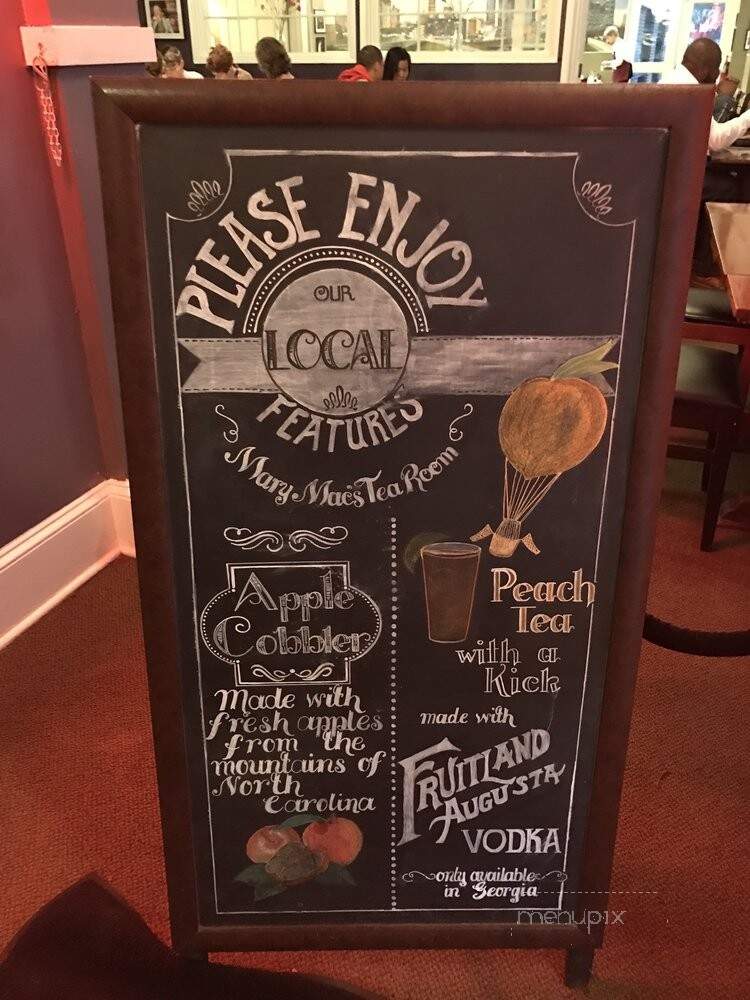 PLEASE ENJOY
OUR
LOCAL
FEATURES
Mary Mac's Tea Room
Apple
Cobbler
Made with
fresh apples
from the
mountains of
North
Carolina
Peach
Tea
with a
Kick
made with
FRUITLAND
AUGUSTA
VODKA
only available
in Georgia
menupix